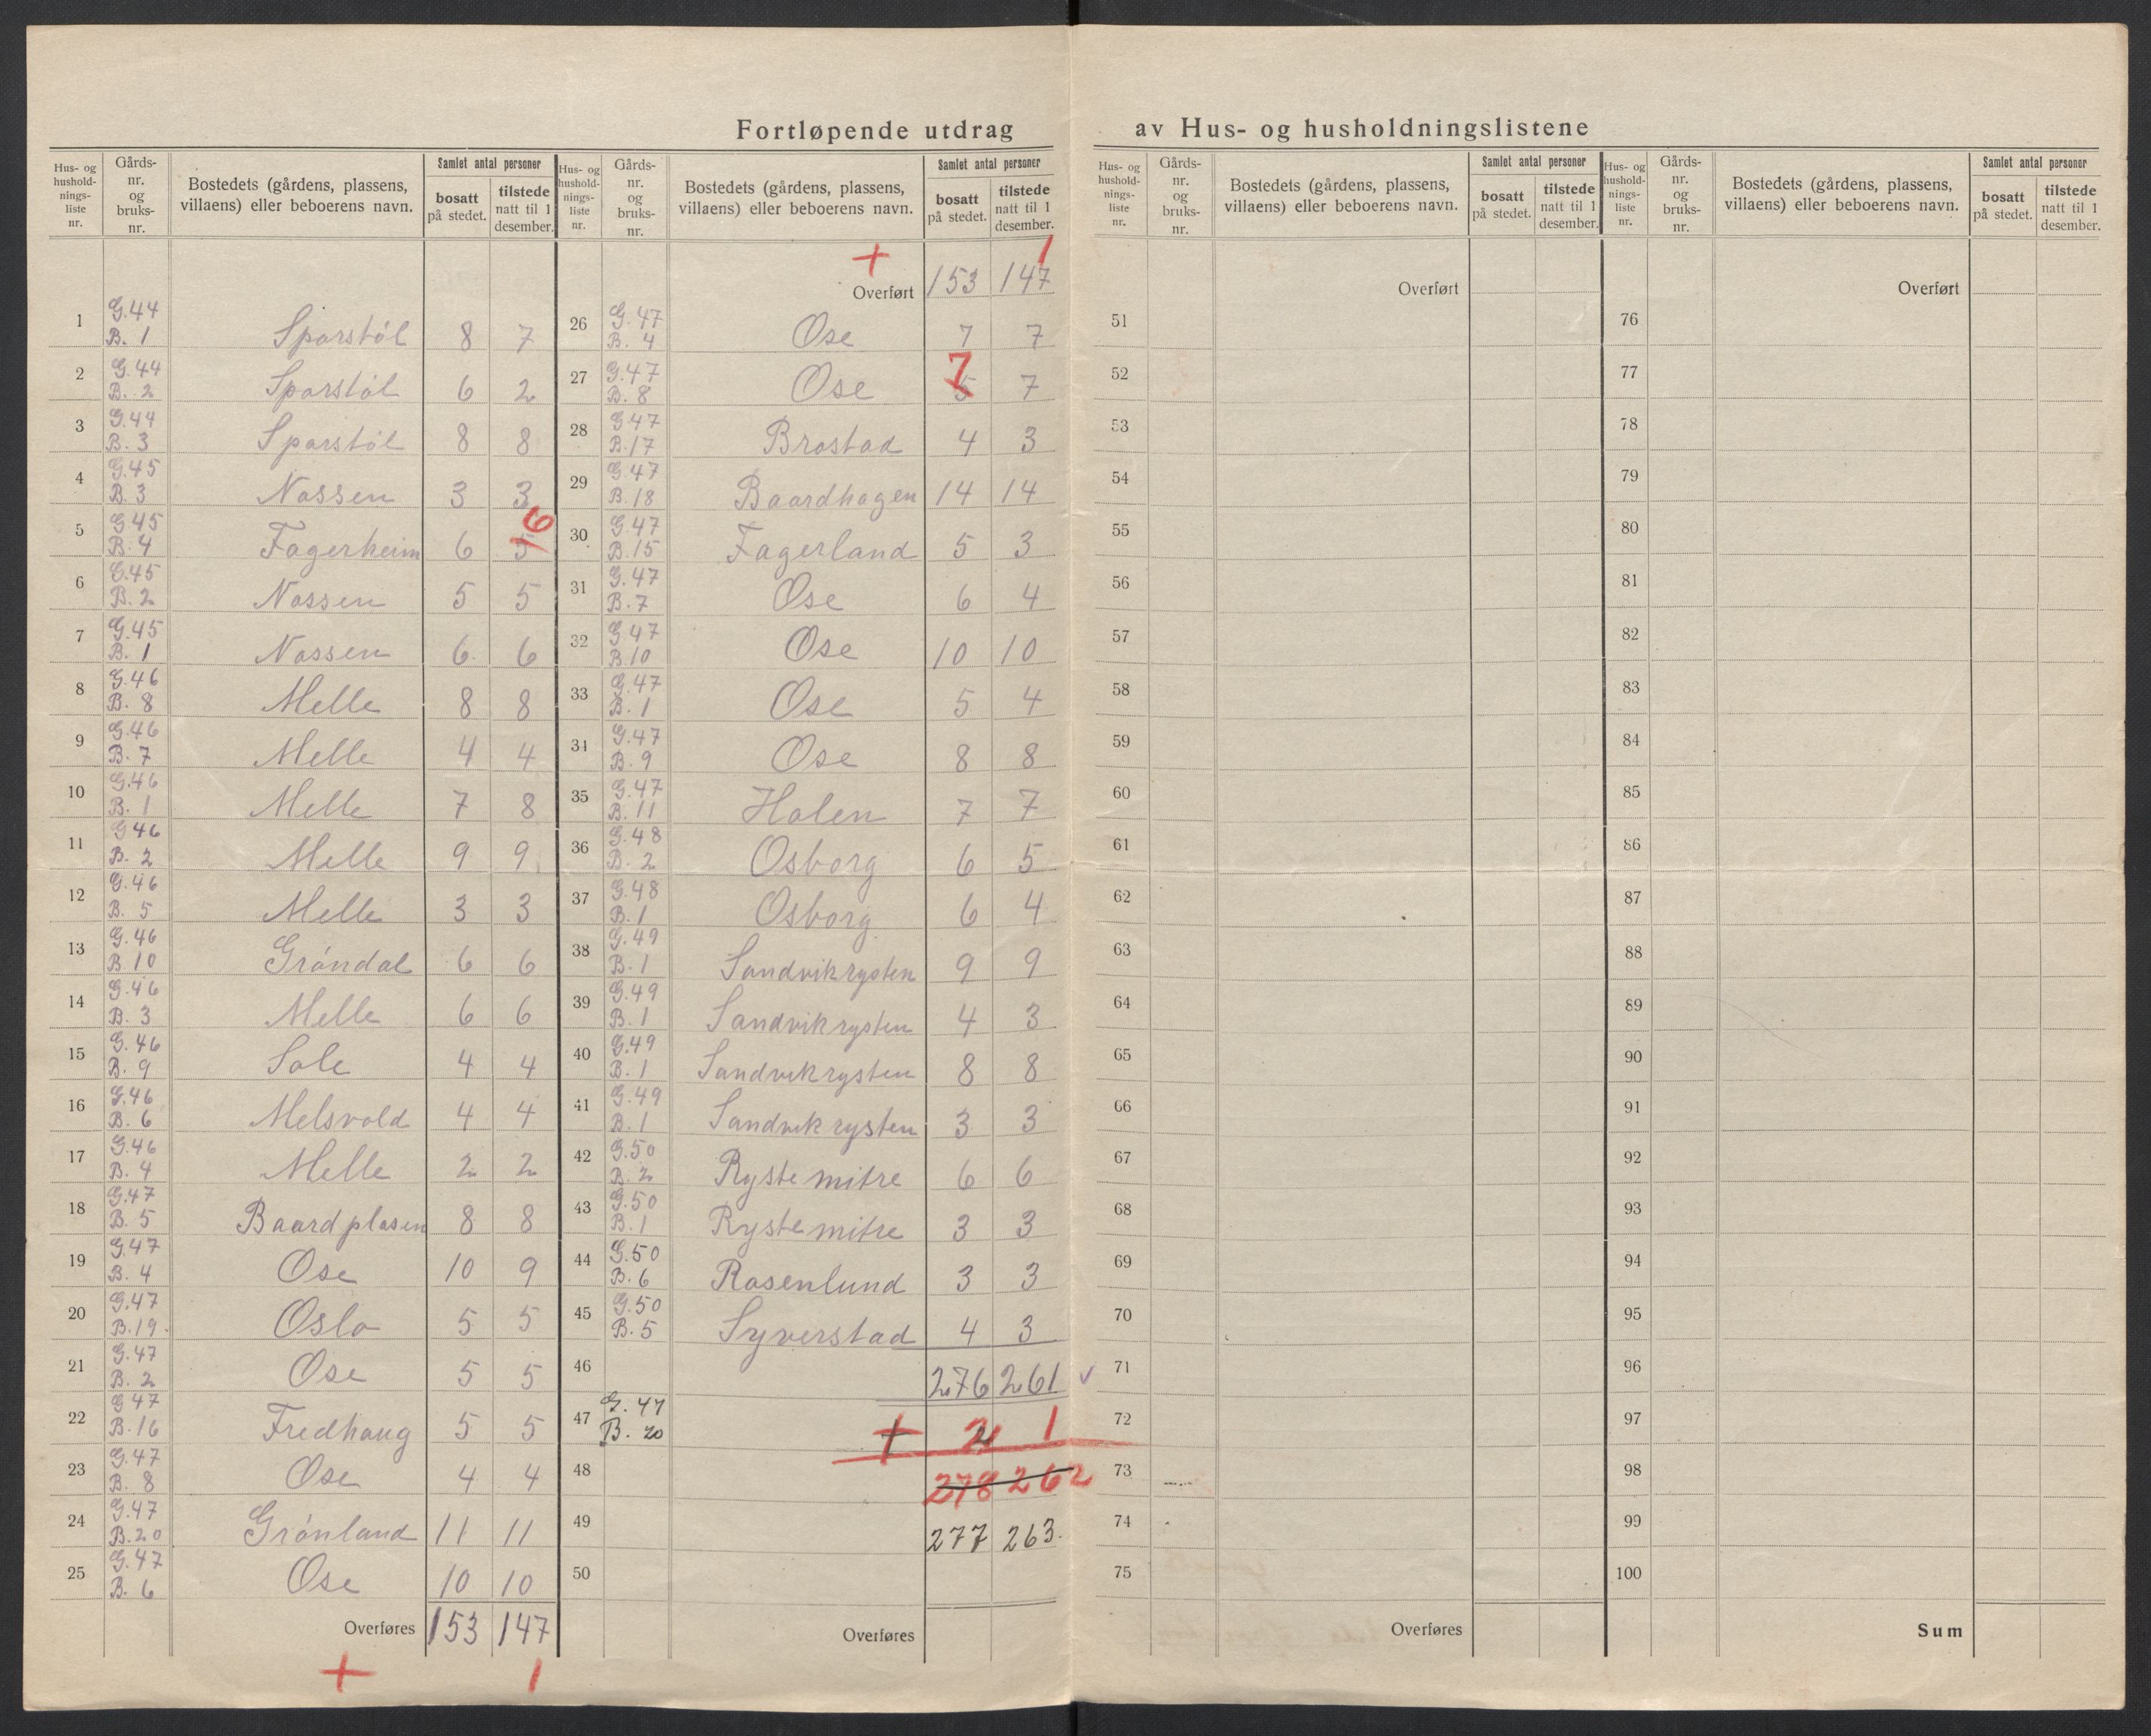 Fortløpende utdrag av Hus- og husholdningslistene
Hus- og hushold-nings-liste nr. | Gårds-nr. og bruks-nr. | Bostedets (gårdens, plassens, villaens) eller beboerens navn. | Samlet antal personer bosatt på stedet. | tilstede natt til 1 desember.
1 G.44 B. 1 Sporstøl 8 7
2 G.44 B. 2 Sporstøl 6 2
3 G.44 B. 3 Sporstøl 8 8
4 G.45 B. 3 Nossen 3 3
5 G.45 B. 4 Fagerheim 6 5 6
6 G.45 B. 2 Nossen 5 5
7 G.45 B. 1 Nossen 6 6
8 G.46 B. 8 Melle 8 8
9 G.46 B. 7 Melle 4 4
10 G.46 B. 1 Melle 7 8
11 G 46 B. 2 Melle 9 9
12 G.46 B. 5 Melle 3 3
13 G.46 B 10 Gróndal 6 6
14 G.46 B. 3 Melle 6 6
15 G.46 B. 9 Sole 4 4
16 G.46 B. 6 Melsvold 4 4
17 G.46 B. 4 Melle 2 2
18 G.47 B. 5 Baardplasen 8 8
19 G.47 B. 4 Ose 10 9
20 G.47 B.19. Oslo 5 5
21 G.47 B. 2 Ose 5 5
22 G 47 B. 16 Fredhaug 5 5
23 G.47 B. 8 Ose 4 4
24 G.47 B.20 Grónland 11 11
25 G.47 B. 6 Ose 10 10
Overføres 153 147
+ 1
Hus- og hushold-nings-liste nr. | Gårds-nr. og bruks-nr. | Bostedets (gårdens, plassens, villaens) eller beboerens navn. | Samlet antal personer bosatt på stedet. | tilstede natt til 1 desember.
+ 1
Overført 153 147
26 G.47 B. 4 Ose 7 7
27 G.47 B. 8 Ose 5 7 7
28 G.47 B.17 Brostad 4 3
29 G.47 B.18 Baardhagen 14 14
30 G.47 B.15 Fagerland 5 3
31 G.47 B.7 Ose 6 4
32 G.47 B.10 Ose 10 10
33 G.47 B. 1 Ose 5 4
34 G.47 B. 9 Ose 8 8
35 G.47 B. 11 Holen 7 7
36 G.48 B. 2 Osborg 6 5
37 G.48 B.1 Osborg 6 4
38 G.49 B. 1 Sandvikrysten 9 9
39 G.49 B. 1 Sandvikrysten 4 3
40 G.49 B. 1 Sandvikrysten 8 8
41 G.49 B. 1 Sandvikrysten 3 3
42 G.50 B. 2 Ryste mitre 6 6
43 G.50 B. 1 Rystemitre 3 3
44 G.50 B. 6 Rosenlund 3 3
45 G.50 B. 5 Syverstad 4 3
46 276 261 ✓
47 G. 47 B. 20 + 2 1
48 278 262
49 277 263.
50
Overføres
Hus- og hushold-nings-liste nr. | Gårds-nr. og bruks-nr. | Bostedets (gårdens, plassens, villaens) eller beboerens navn. | Samlet antal personer bosatt på stedet. | tilstede natt til 1 desember.
Overført
51
52
53
54
55
56
57
58
59
60
61
62
63
64
65
66
67
68
69
70
71
72
73
74
75
Overføres
Hus- og hushold-nings-liste nr. | Gårds-nr. og bruks-nr. | Bostedets (gårdens, plassens, villaens) eller beboerens navn. | Samlet antal personer bosatt på stedet. | tilstede natt til 1 desember.
Overført
76
77
78
79
80
81
82
83
84
85
86
87
88
89
90
91
92
93
94
95
96
97
98
99
100
Sum